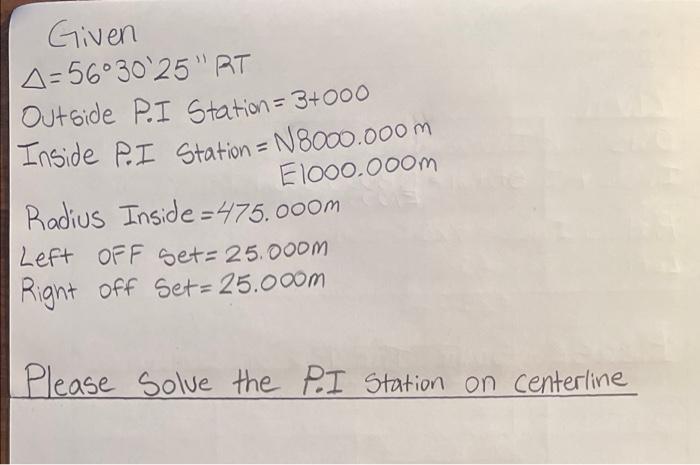 Given
Δ=56°30'25" RT
Outside P.I Station = 3+000
Inside P.I Station = N8000.000m
E1000.000m
Radius Inside = 475.000m
Left OFF Set = 25.000m
Right off Set = 25.000m
Please Solve the P.I Station on centerline